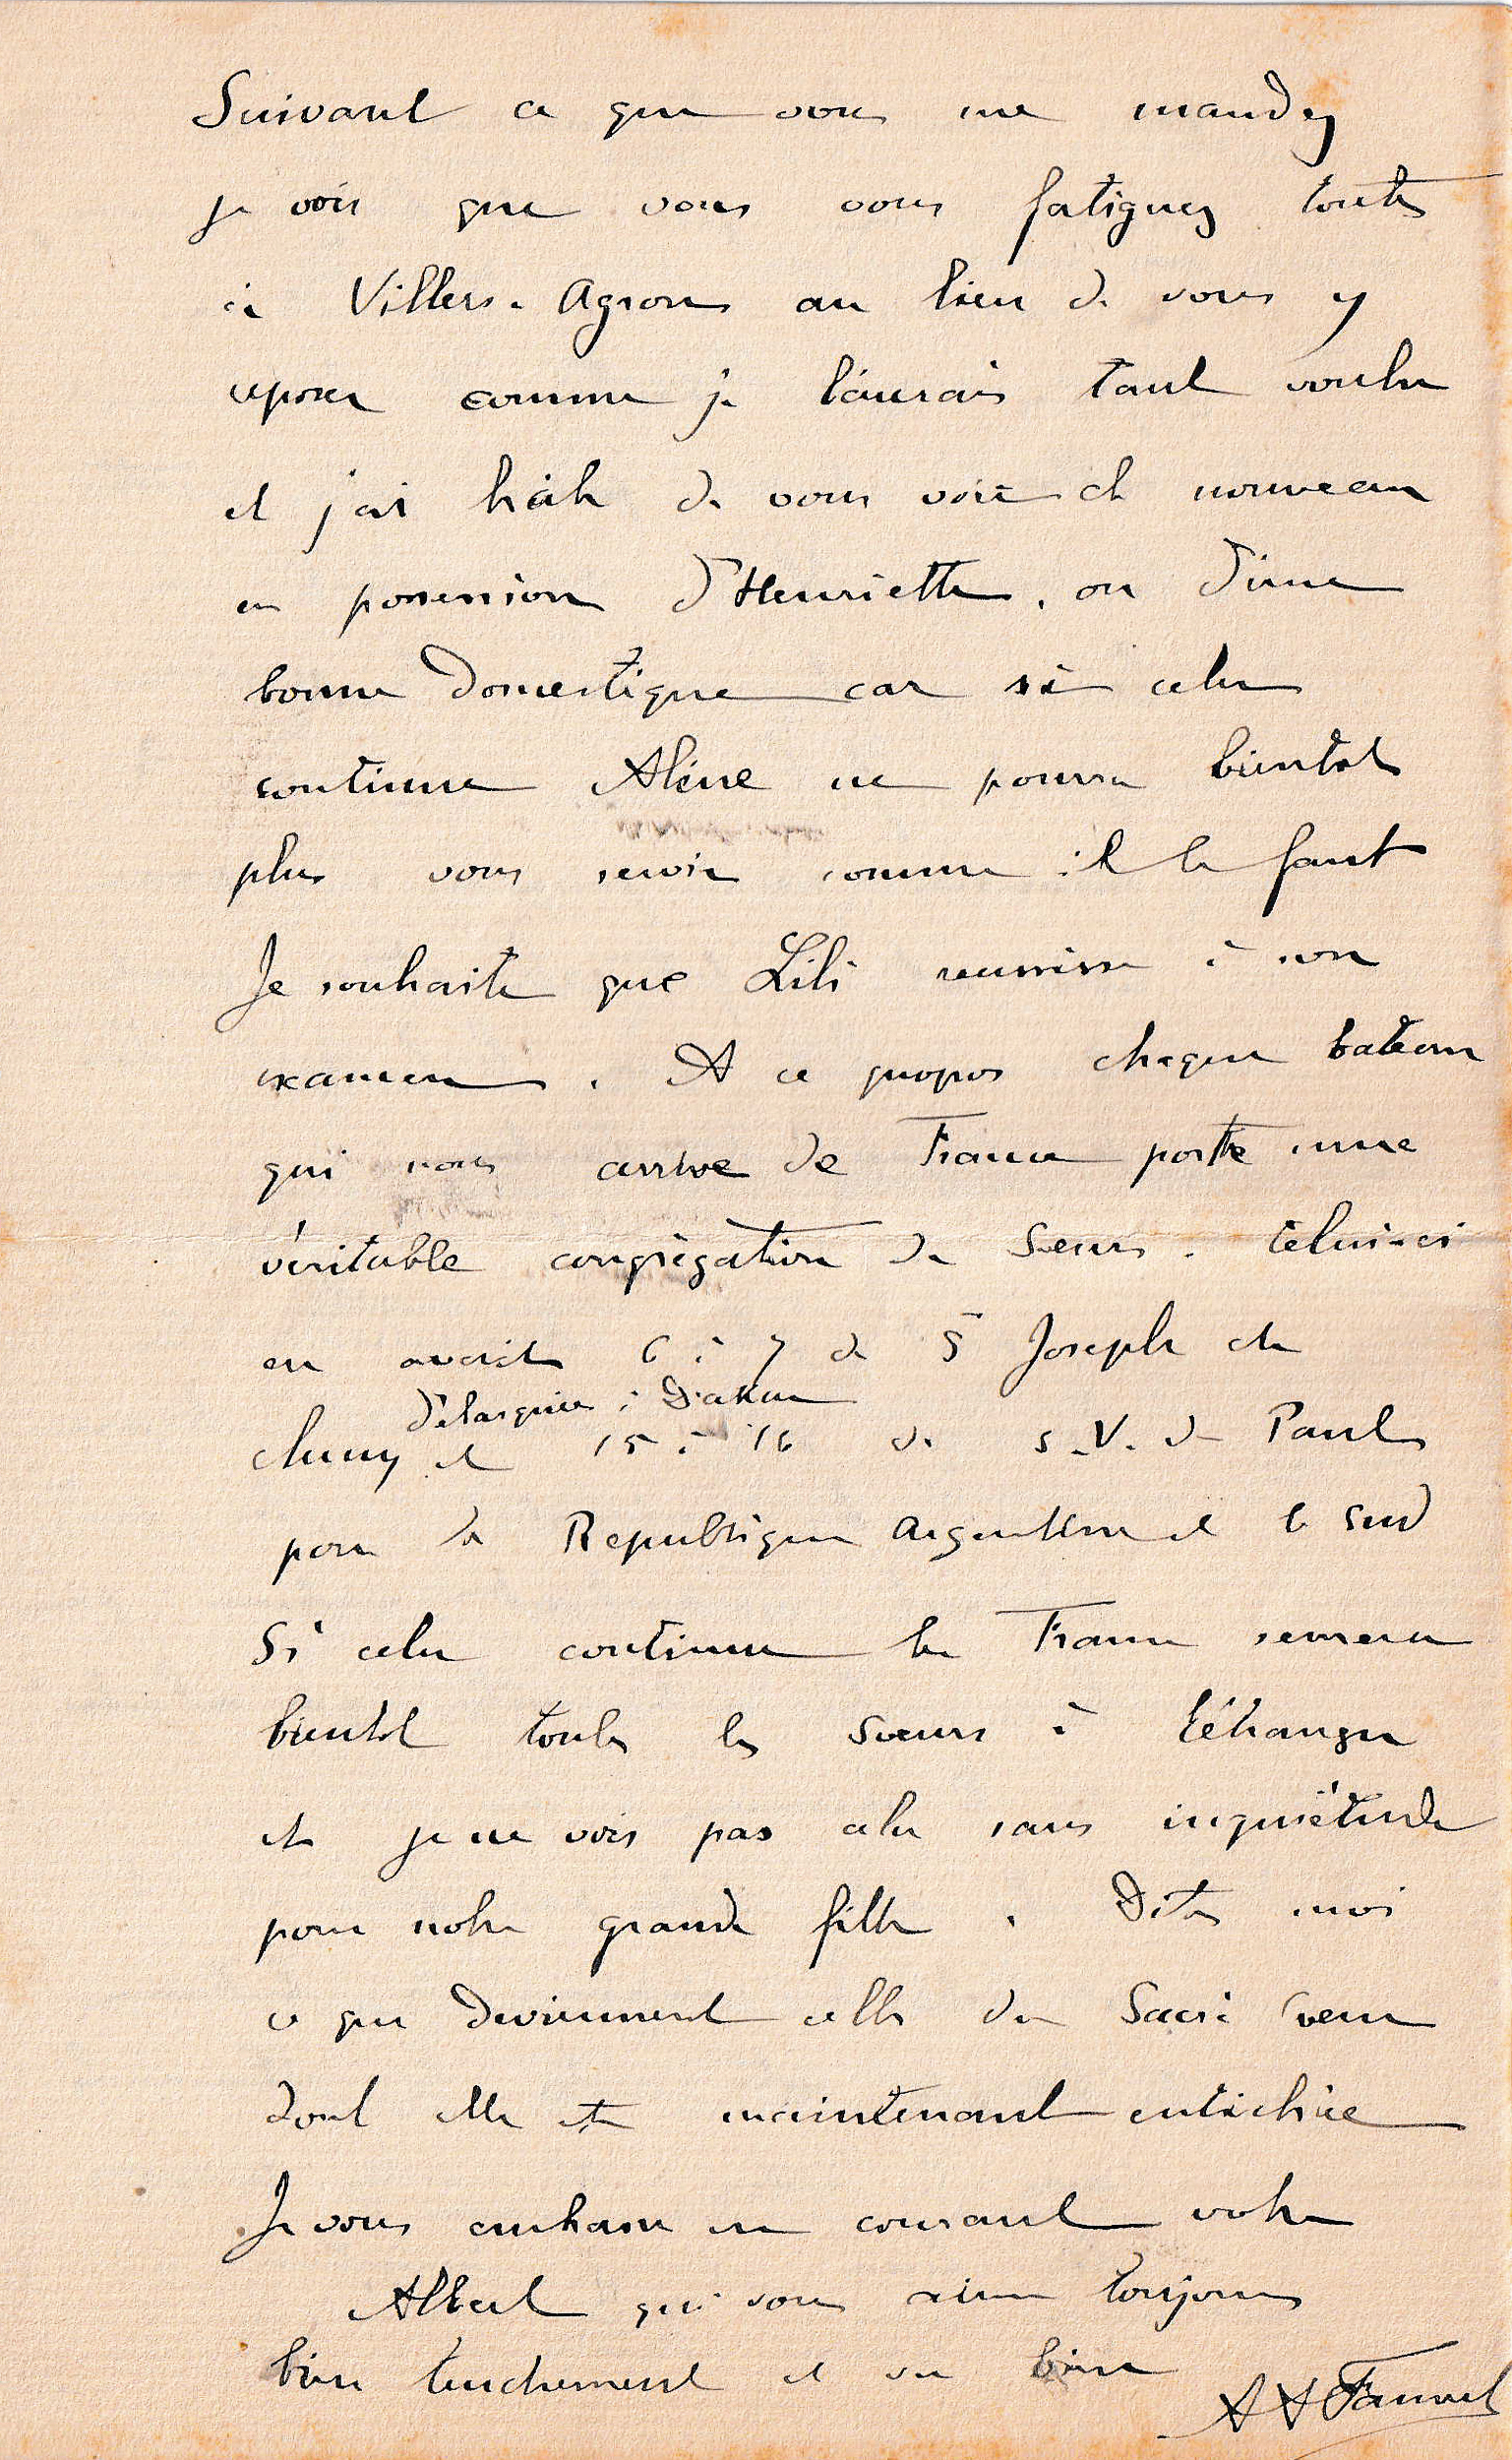 Suivant ce que vous me mandez
je vois que vous vous fatiguez toutes
à Villers-Agron au lieu de vous y
reposer comme je l'aurais tant voulu
et j'ai hâte de vous voir de nouveau
en possession d'Henriette, ou d'une
bonne domestique car si cela
continue Aline ne pourra bientôt
plus vous servir comme il le faut
Je souhaite que Lili réussisse à son
examen. A ce propos chaque bateau
qui nous arrive de France porte une
véritable congrégation de Sœurs. Celui-ci
en avait 6 à 7 de St Joseph de
débarquées à Dakar
cluny et 15 à 16 de S.V. de Paul
pour la Republique Argentine et le Sud
Si cela continue la France
bientôt toutes les sœurs à l'étranger
et je ne vois pas cela sans inquiétude
pour notre grande fille. Dites moi
ce que deviennent celles du Sacré Cœur
dont elle est maintenant entichée
Je vous embrasse en courant votre
Albert qui vous aime toujours
bien tendrement et va bien